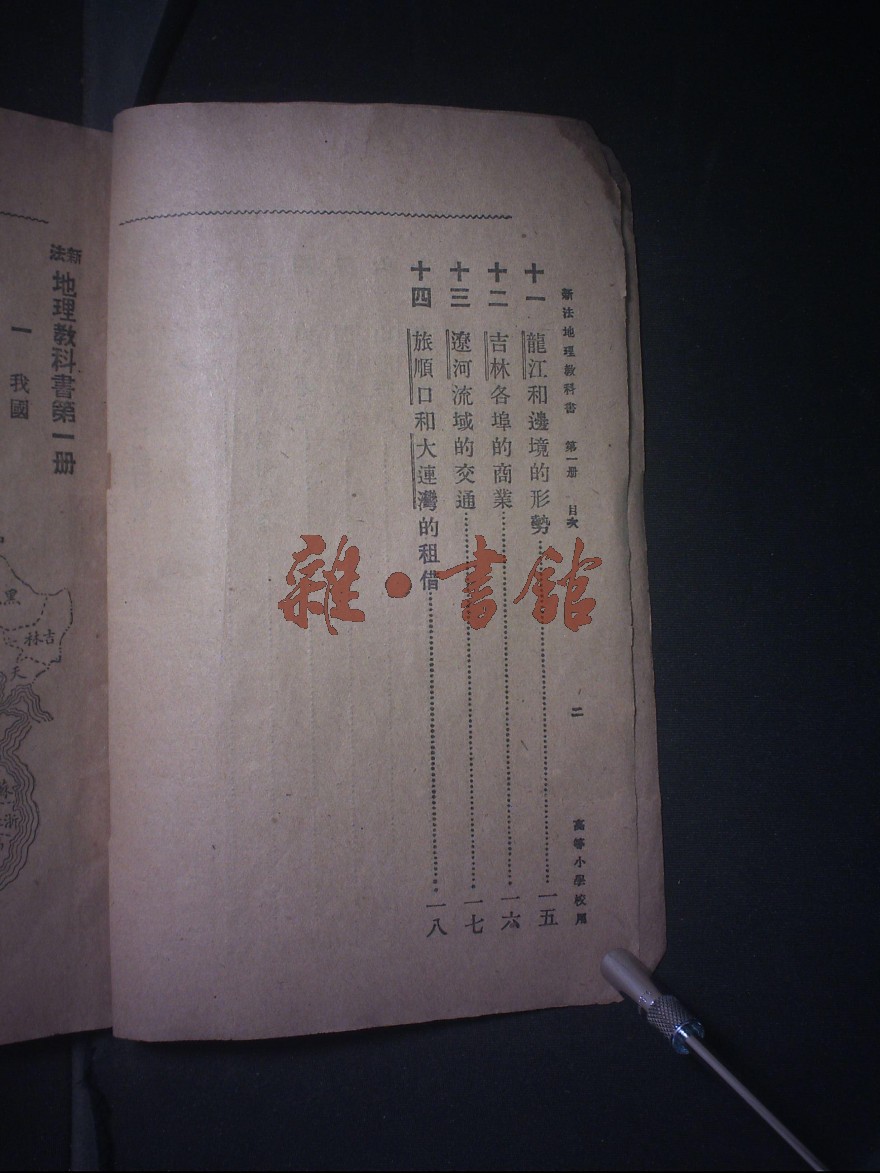 新法地理教科書 第一册 目次 二 高等小學校用
十一 龍江和邊境的形勢……一五
十二 吉林各埠的商業……一六
十三 遼河流域的交通……一七
十四 旅順口和大連灣的租借……一八
新法地理教科書第一册
一 我國
黑
吉林
天
浙
雜·書館